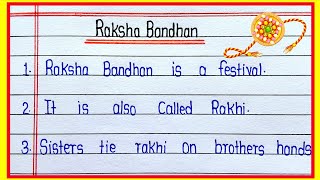 Raksha Bandhan
1. Raksha Bandhan is a festival.
2. It is also Called Rakhi.
3. Sisters tie rakhi on brothers hands